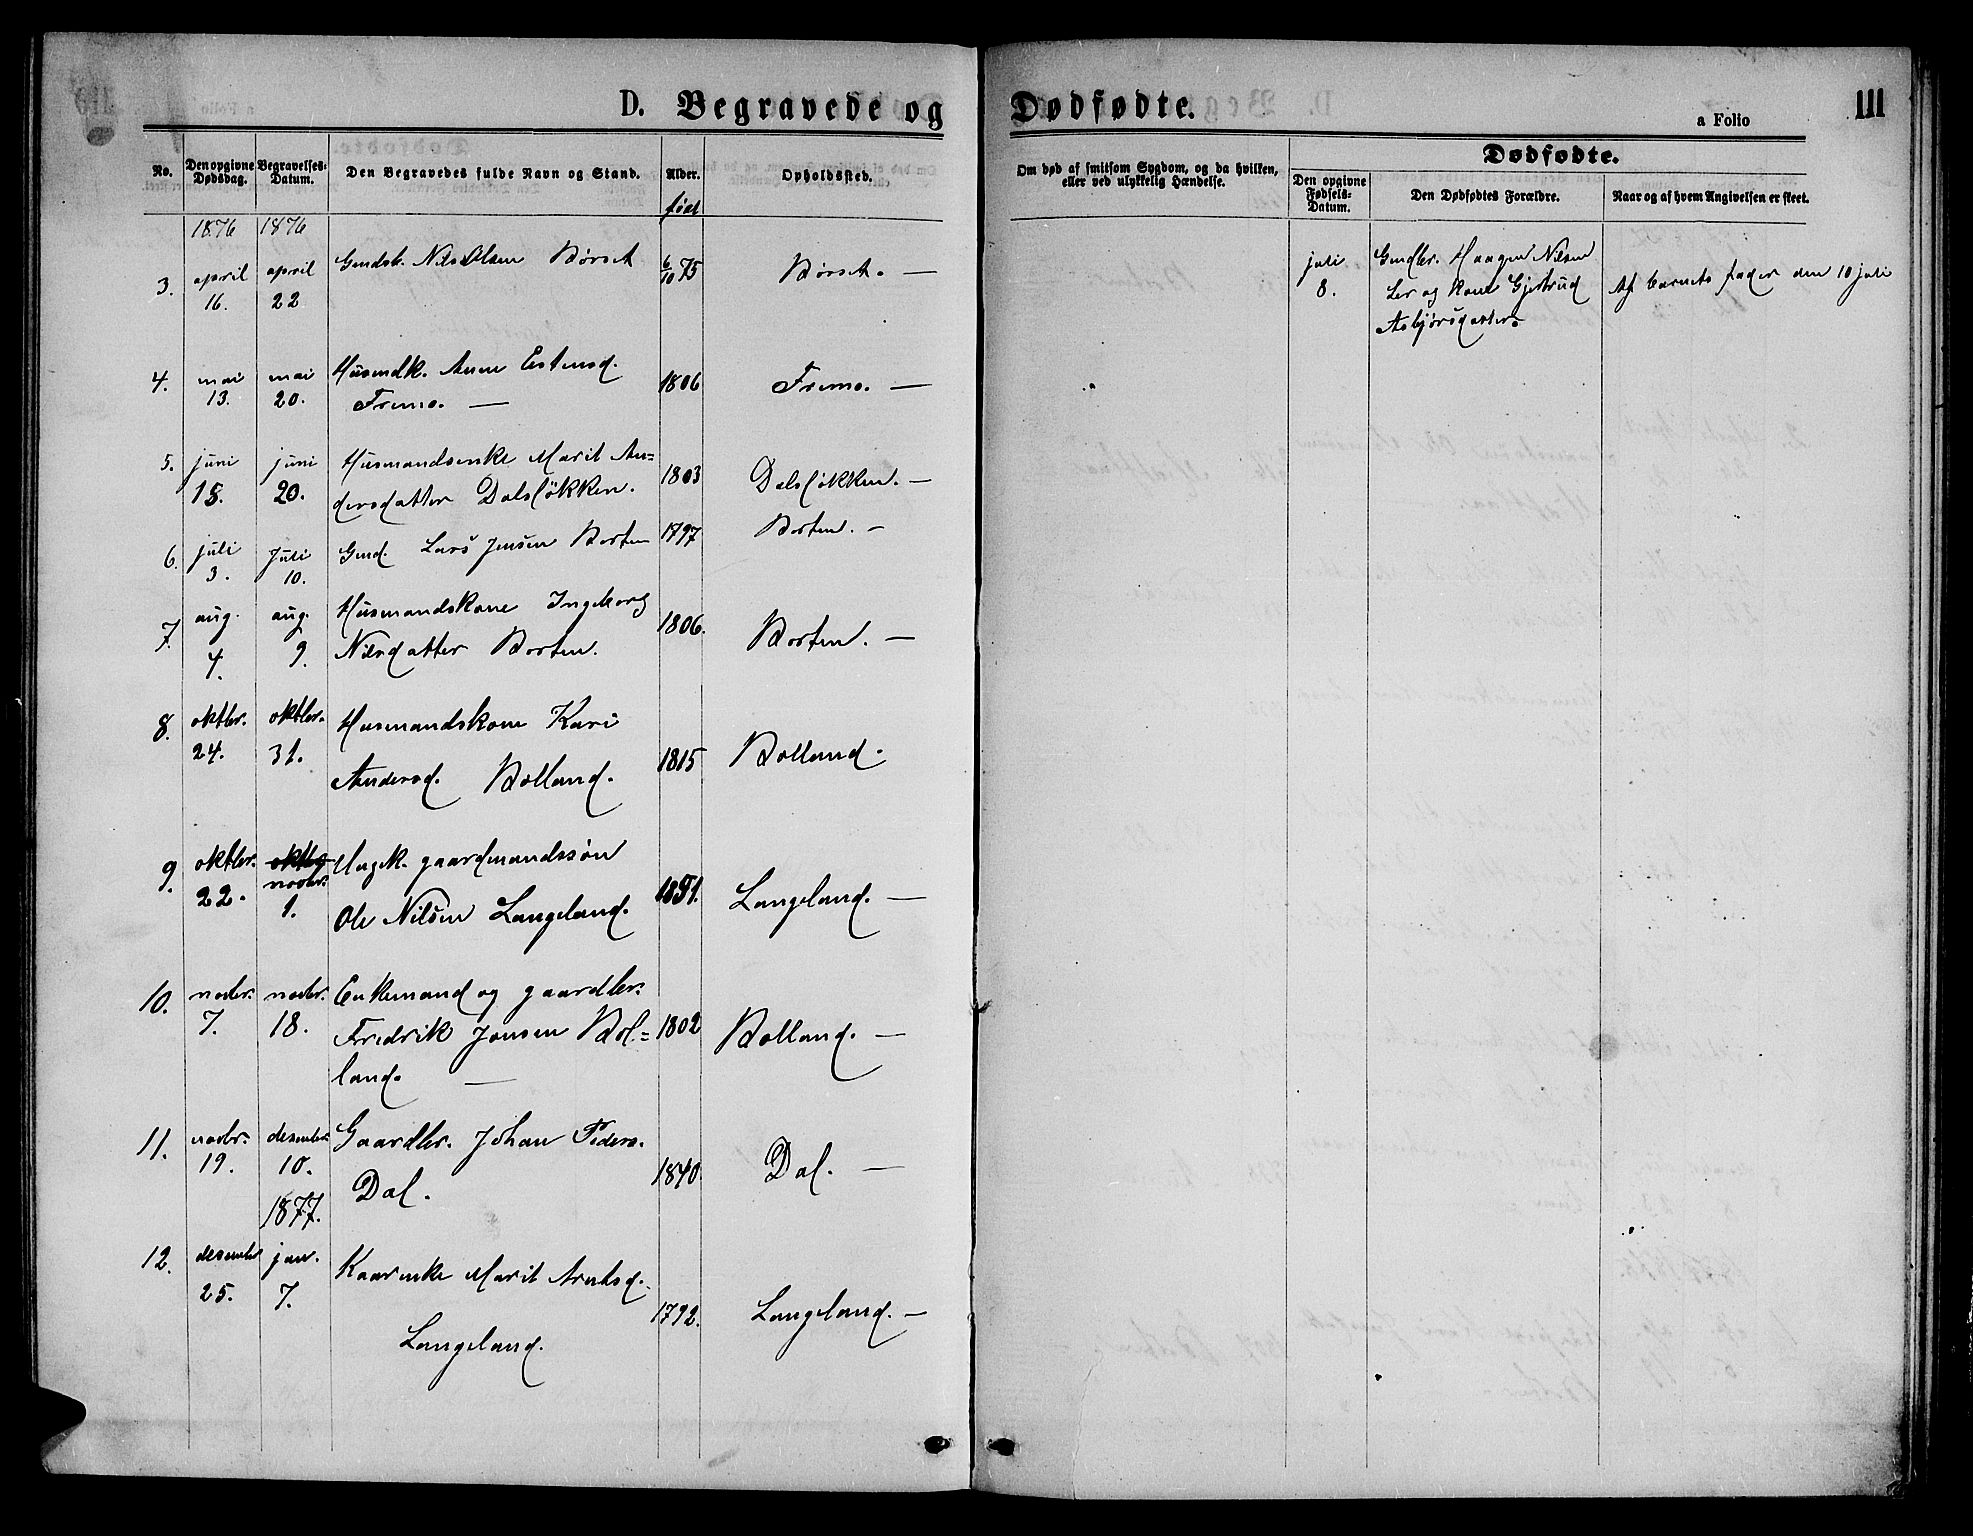 D. Begravede og Dødfødte.
a Folio
111
No.
Den opgivne Dødsdag.
Begravelses-Datum.
Den Begravedes fulde Navn og Stand.
Alder.
født
Opholdssted.
Om død af smitsom Sygdom, og da hvilken,
eller ved ulykkelig Hændelse.
Dødfødte.
Den opgivne Fødsels-Datum.
Den Dødfødtes Forældre.
Naar og af hvem Angivelsen er skeet.
1876 1876
3. april 16. april 22 Nils Olsen Børset 6/10 75 Børset. —
4. mai 13. mai 20. Husmdk. Anne Estensd.
Fremo. — 1806 Fremo. —
5. juni 18. juni 20. Husmandsenke Marit An=
dersdatter Dalsløkken. 1803 Dalsløkken. —
6. juli 3. Juli 10. Gmd. Lars Jensen Borten 1797 Borten. —
7. aug. 4. aug. 9. Husmandskone Ingeborg
Nilsdatter Borten. 1806. Borten. —
8. oktbr. 24. oktbr. 31. Husmandskone Kari
Andersd. Bolland. 1815 Bolland.
9. oktbr. 22. novbr. 1. Ungk. gaardmandssøn
Ole Nilsen Langeland. 1851. Langeland. —
10. novbr. 7. novbr. 18. Enkemand og gaardbr.
Fredrik Jonsen Bol=
land. — 1802 Bolland. —
11. novbr. 19. desember 10. Gaardbr. Johan Peders.
Dal. 1840. Dal. —
1877.
12. desember 25. jan. 7. Kaarenke Marit Arntsd.
Langeland. 1792. Langeland. —
juli 8. Haagen Nilsen
Ler og Kone Gjertrud
Asbjørsdatter.
Af barnets fader den 10 juli